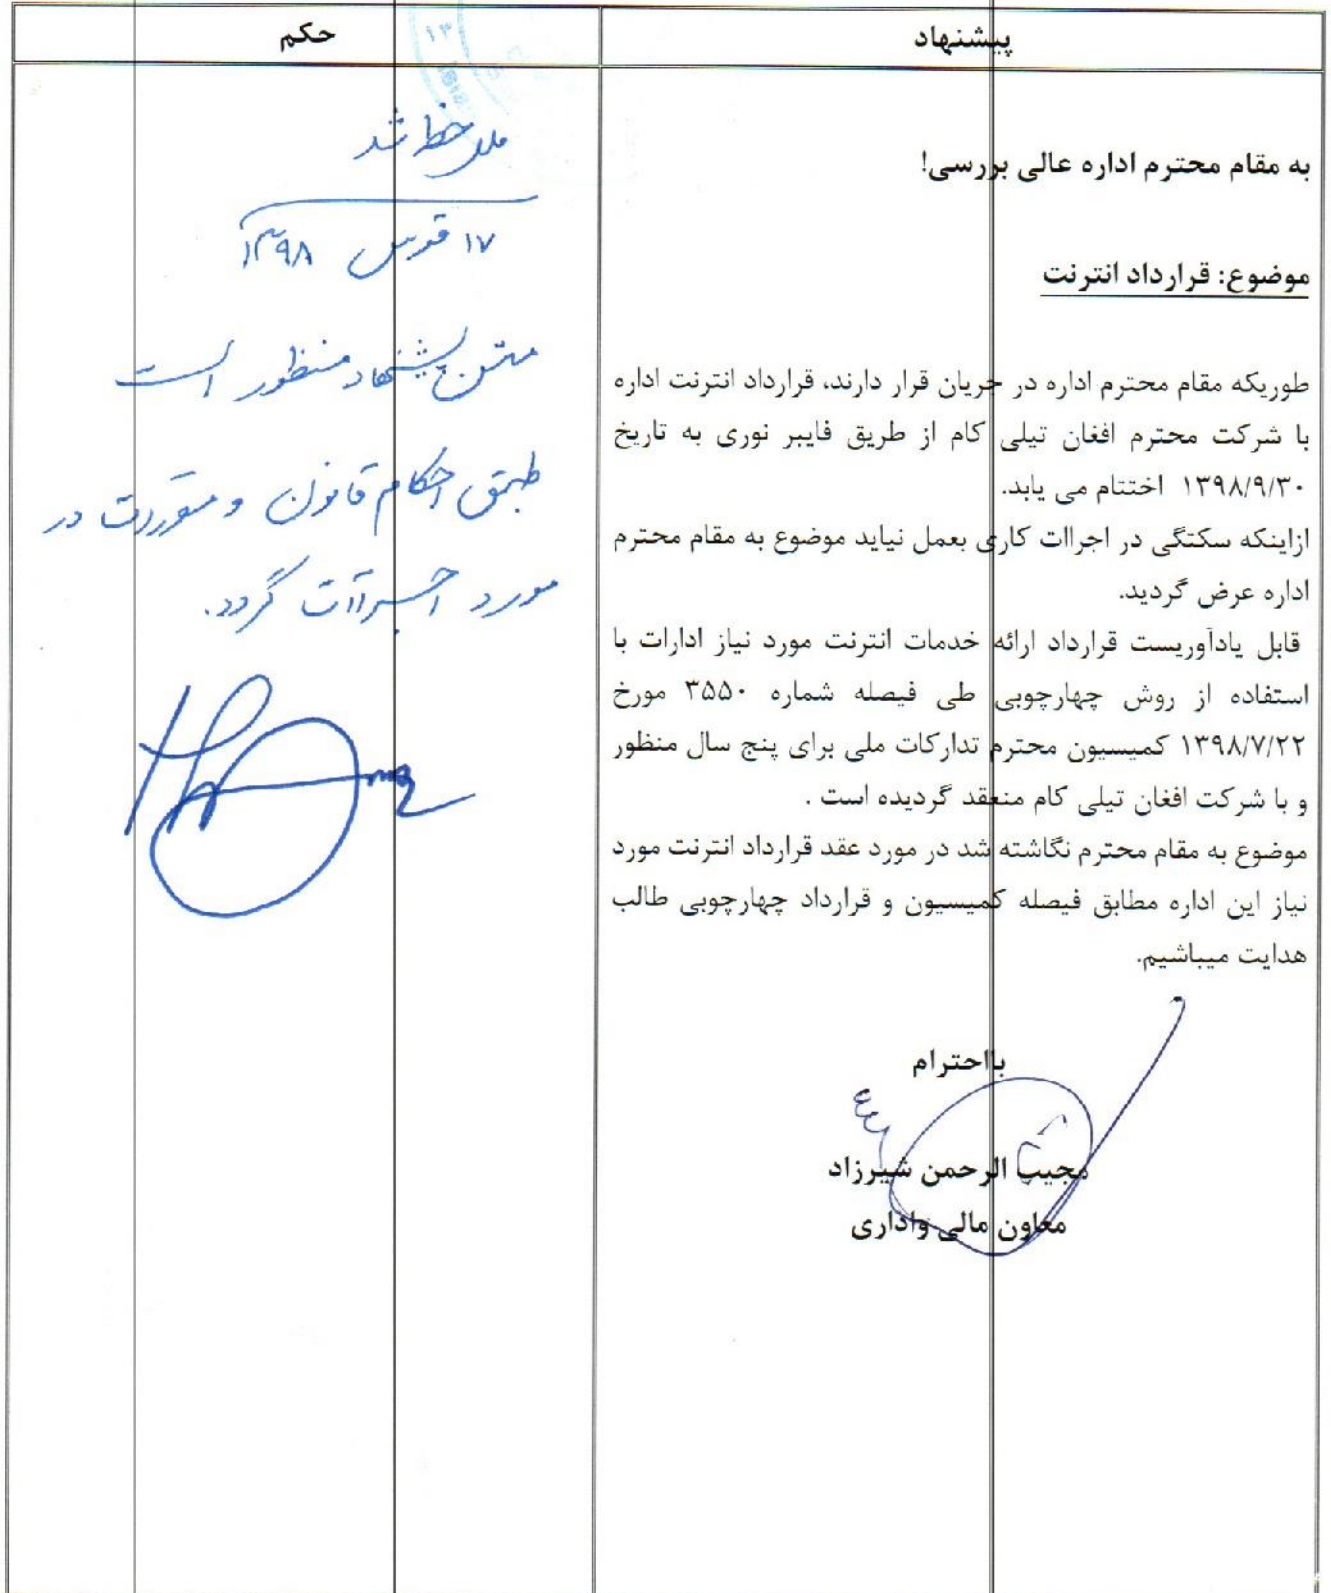 پیشنهاد
به مقام محترم اداره عالی بررسی!
موضوع: قرارداد انترنت
طوریکه مقام محترم اداره در جریان قرار دارند، قرارداد انترنت اداره
با شرکت محترم افغان تیلی کام از طریق فایبر نوری به تاریخ
۱۳۹۸/۹/۳۰ اختتام می یابد.
ازاینکه سکتگی در اجراات کاری بعمل نیاید موضوع به مقام محترم
اداره عرض گردید.
قابل یادآوریست قرارداد ارائه خدمات انترنت مورد نیاز ادارات با
استفاده از روش چهارچوبی طی فیصله شماره ۳۵۵۰ مورخ
۱۳۹۸/۷/۲۲ کمیسیون محترم تدارکات ملی برای پنج سال منظور
و با شرکت افغان تیلی کام منعقد گردیده است .
موضوع به مقام محترم نگاشته شد در مورد عقد قرارداد انترنت مورد
نیاز این اداره مطابق فیصله کمیسیون و قرارداد چهارچوبی طالب
هدایت میباشیم.
بااحترام
مجیب الرحمن شیرزاد
معاون مالی واداری
حکم
۱۳
ملاحظه شد
۱۷ قوس ۱۳۹۸
متن پیشنهاد منظور است
طبق احکام قانون و مقررات در
مورد اجراآت گردد.